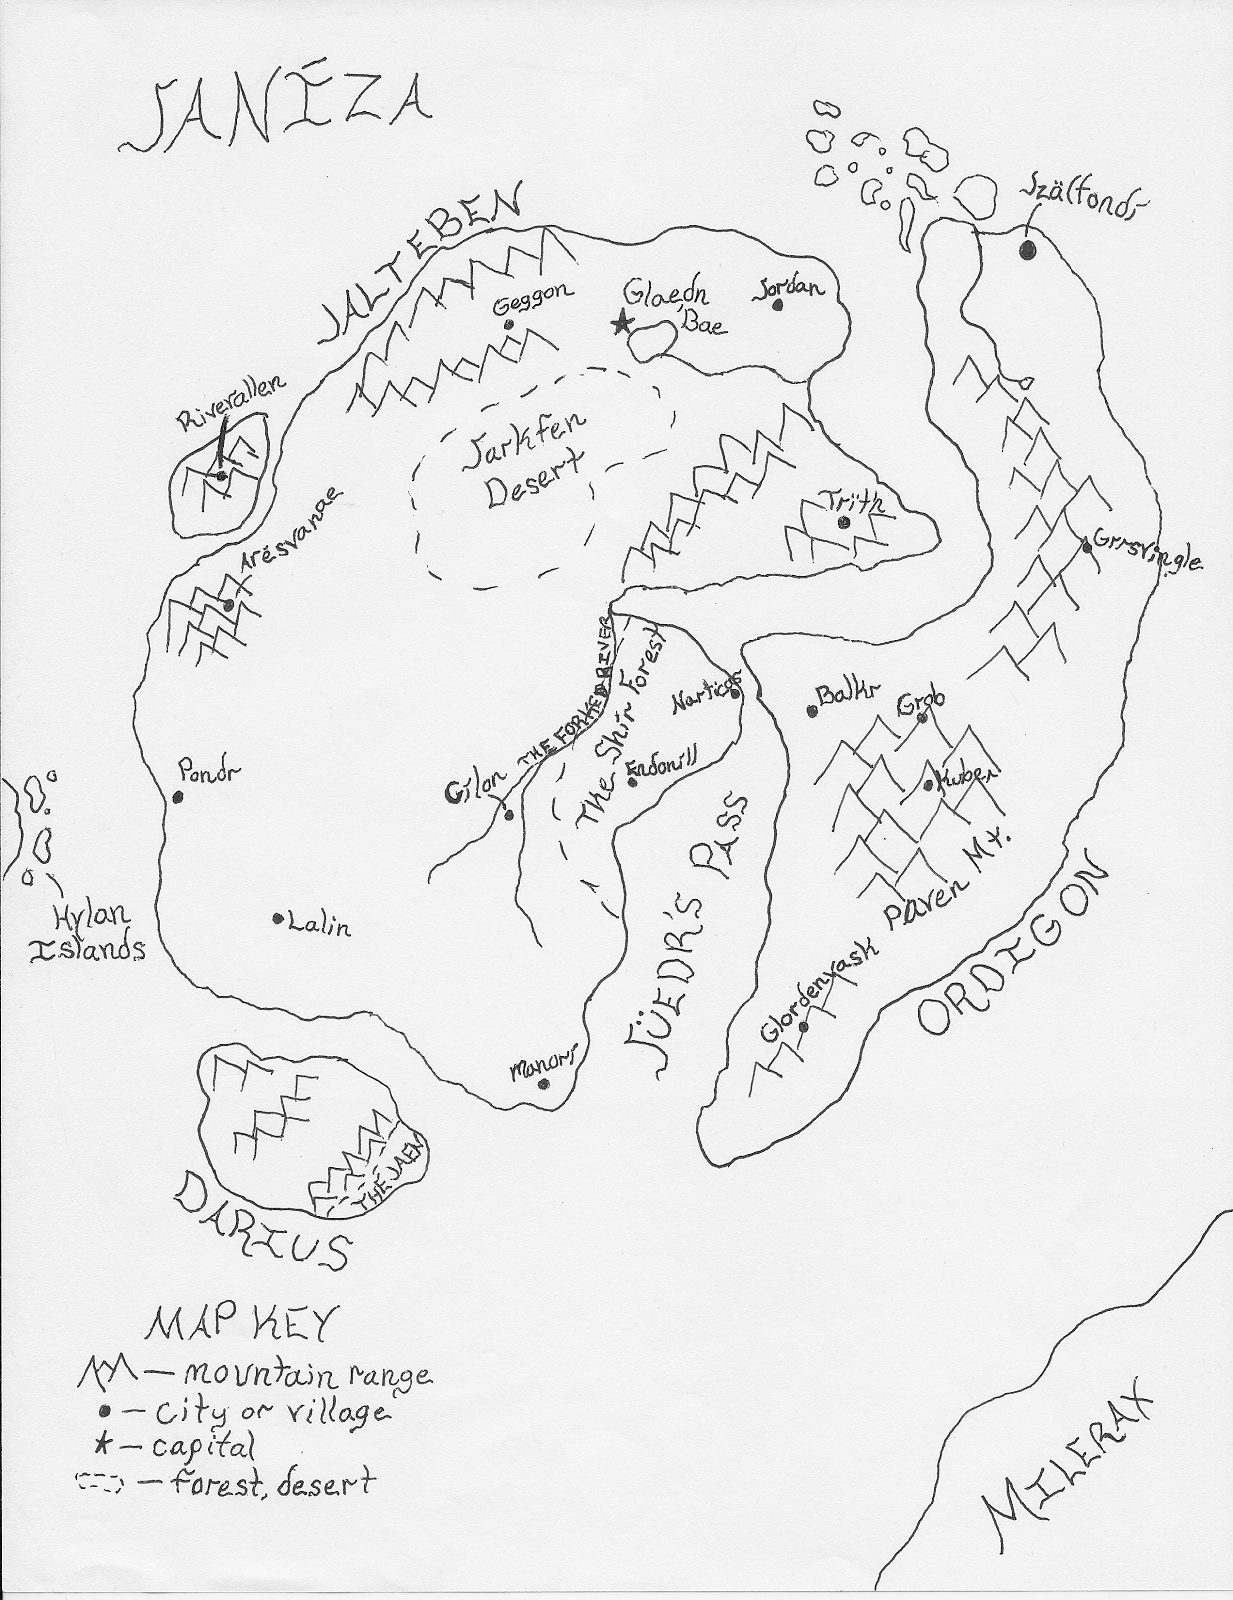 JANÍZA
JALTEBEN
Szälfondr
Geggon
Glaedn
Bae
Jordan
Riverallen
Jarkfen
Desert
Arésvanae
Trith
Grrsvingle
THE FORKED RIVER
The Shir Forest
Narticas
Balkr
Grob
Endonill
Kuber
Pondr
Gilan
Paren Mt.
JÜEDR'S PASS
Hylan
Islands
Lalin
ORDIGON
Glordenyask
Manorr
THE JAEM
DARIUS
MAP KEY
— mountain range
— city or village
— capital
— forest, desert
MILERAX